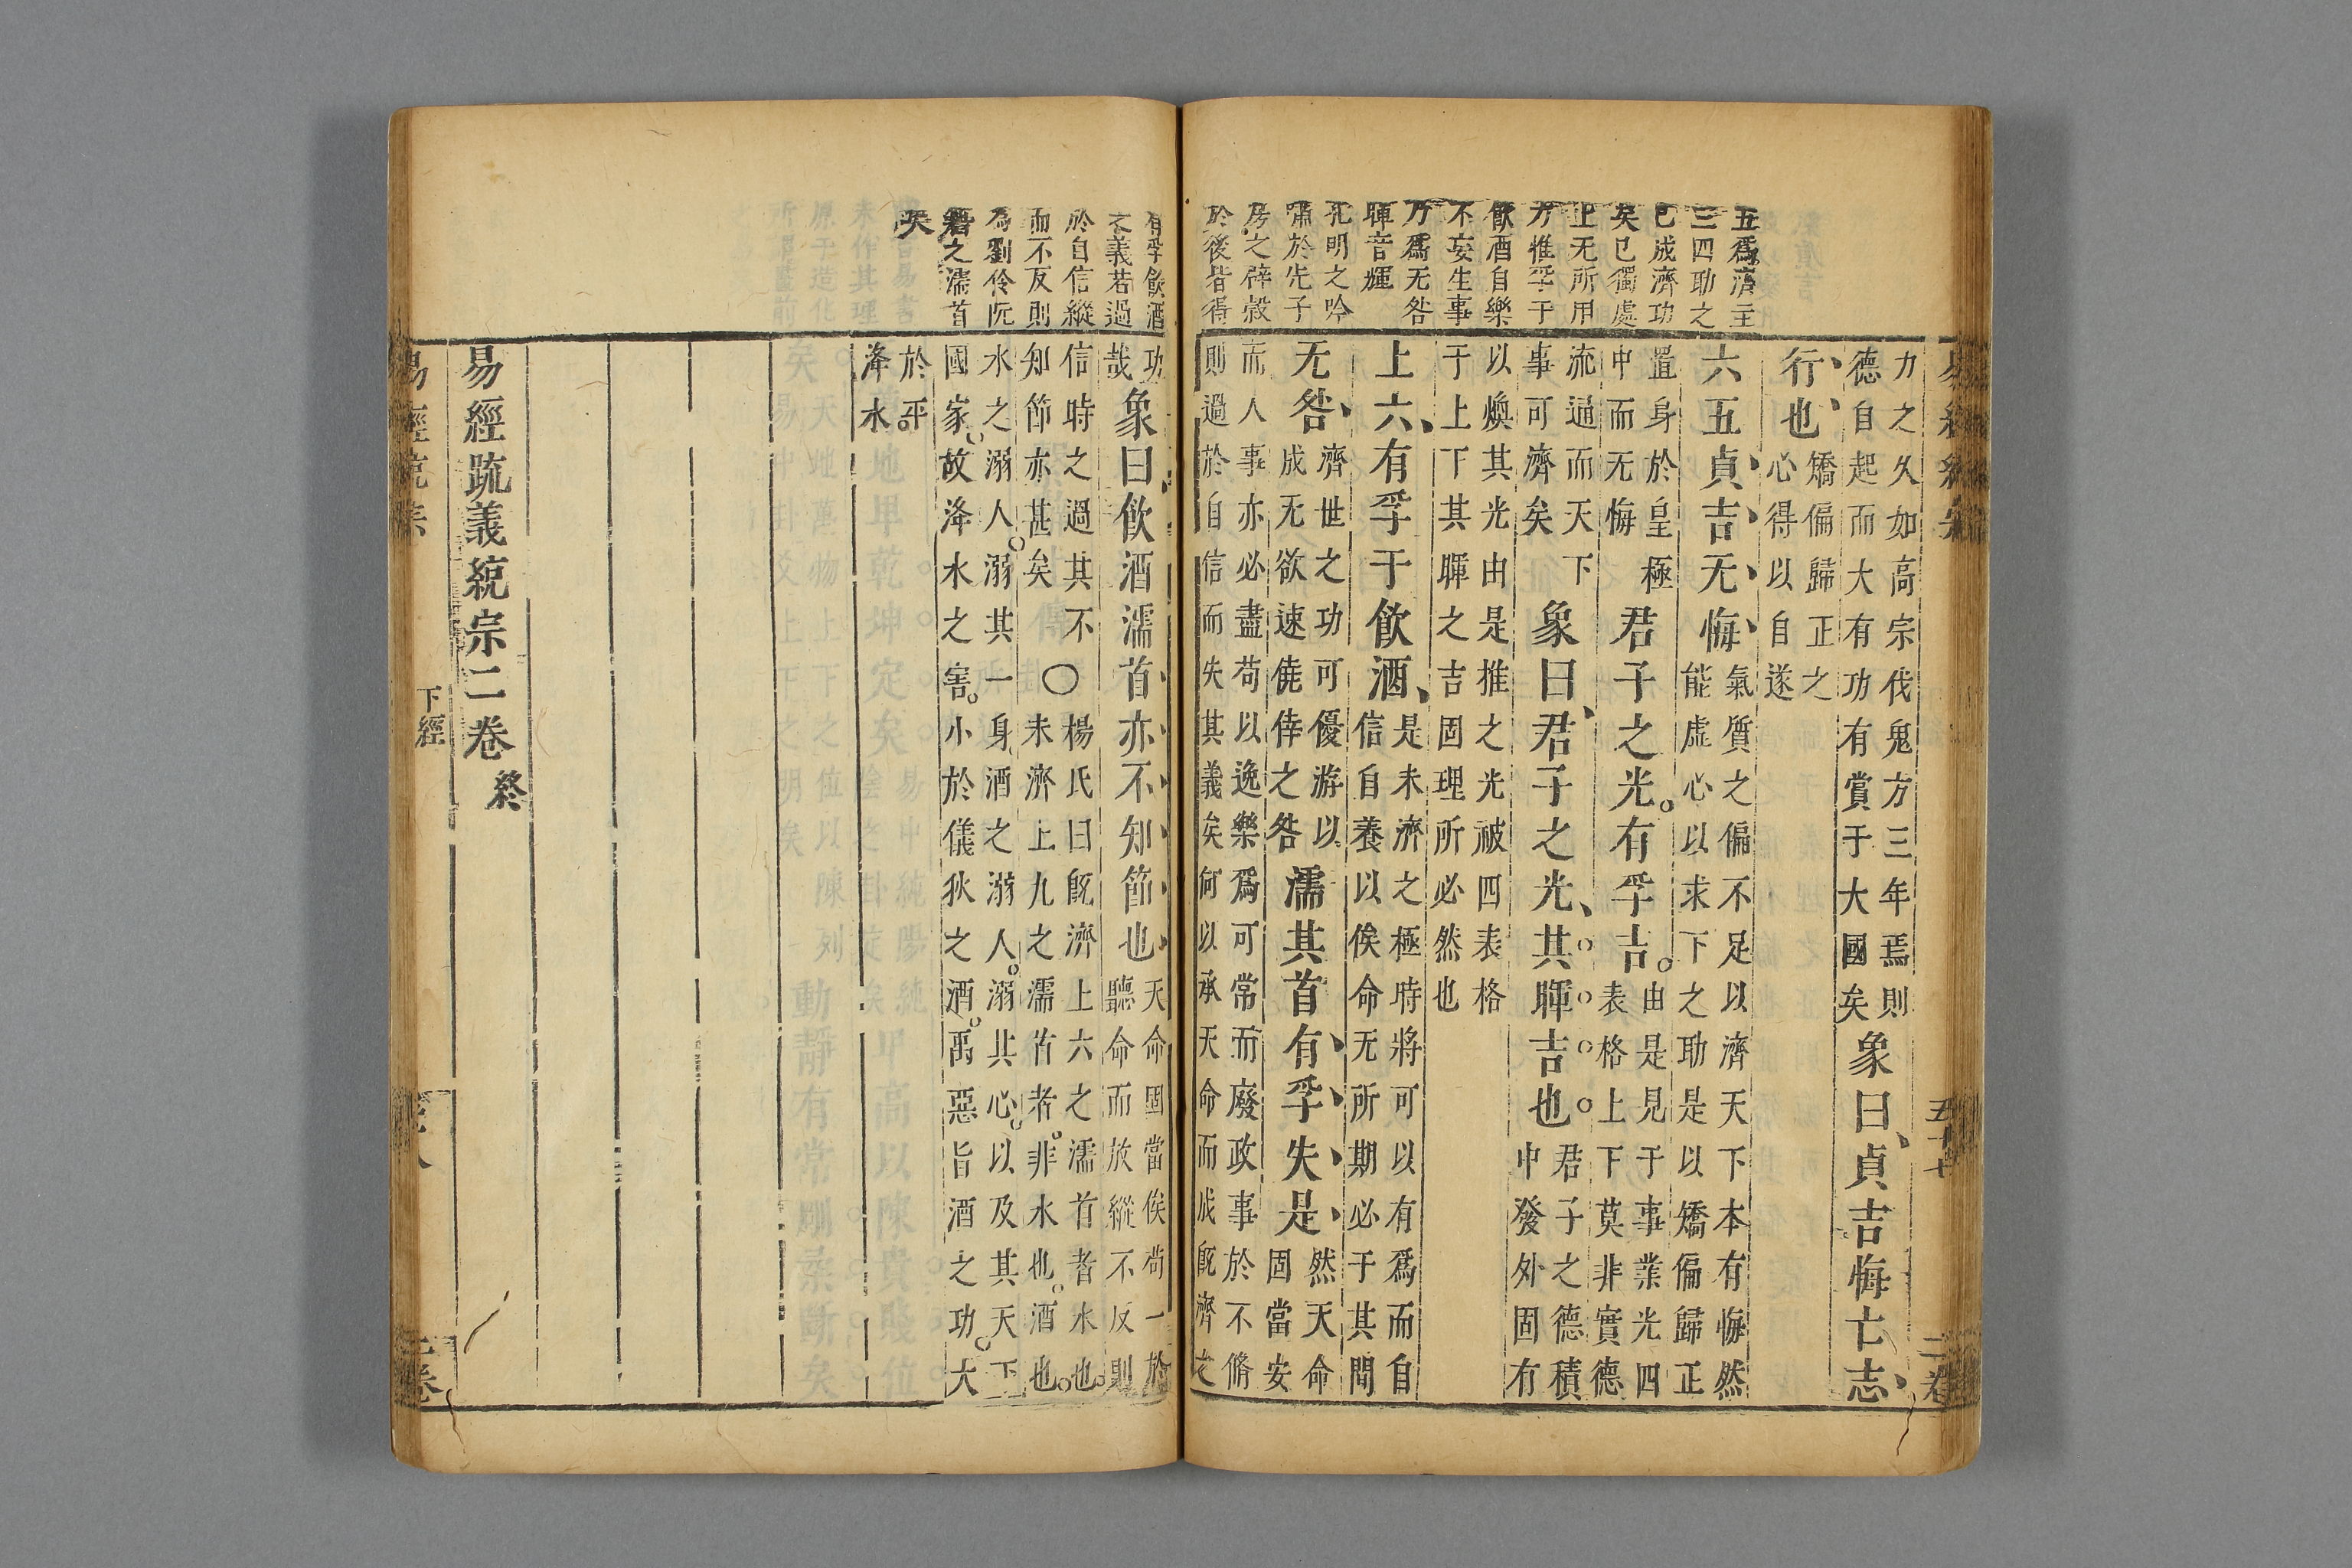 五爲濟主
三四助之
已成濟功
矣已獨處
上无所用
力惟孚于
飲酒自樂
不妄生事
乃爲无咎
暉音輝
孔明之吟
嘯於先子
房之辟穀
於後皆得
力之久如高宗伐鬼方三年焉則
德自起而大有功有賞于大國矣
象曰貞吉悔亡志
行也
矯偏歸正之
心得以自遂
六五貞吉无悔
氣質之偏不足以濟天下本有悔然
能虛心以求下之助是以矯偏歸正
置身於皇極
中而无悔
君子之光有孚吉
由是見于事業光四
表格上下莫非實德
流通而天下
事可濟矣
象曰君子之光其暉吉也
君子之德積
中發外固有
以煥其光由是推之光被四表格
于上下其暉之吉固理所必然也
上六有孚于飲酒
是未濟之極時將可以有爲而自
信自養以俟命无所期必于其間
无咎
濟世之功可優游以
成无欲速僥倖之咎
濡其首有孚失是
然天命
固當安
而人事亦必盡苟以逸樂爲可常而廢政事於不脩
則過於自信而失其義矣何以承天命而成旣濟之
有孚飲酒
之義若過
於自信縱
而不反則
爲劉伶阮
籍之濡首
矣
功
哉
象曰飲酒濡首亦不知節也
天命固當俟苟一於
聽命而放縱不反則
信時之過其不
知節亦甚矣
〇
楊氏曰旣濟上六之濡首者水也
未濟上九之濡首者非水也酒也
水之溺人溺其一身酒之溺人溺其心以及其天下
國家故洚水之害小於儀狄之酒禹惡旨酒之功大
於平
洚水
易經疏義統宗二卷終
下經
五十七
二卷